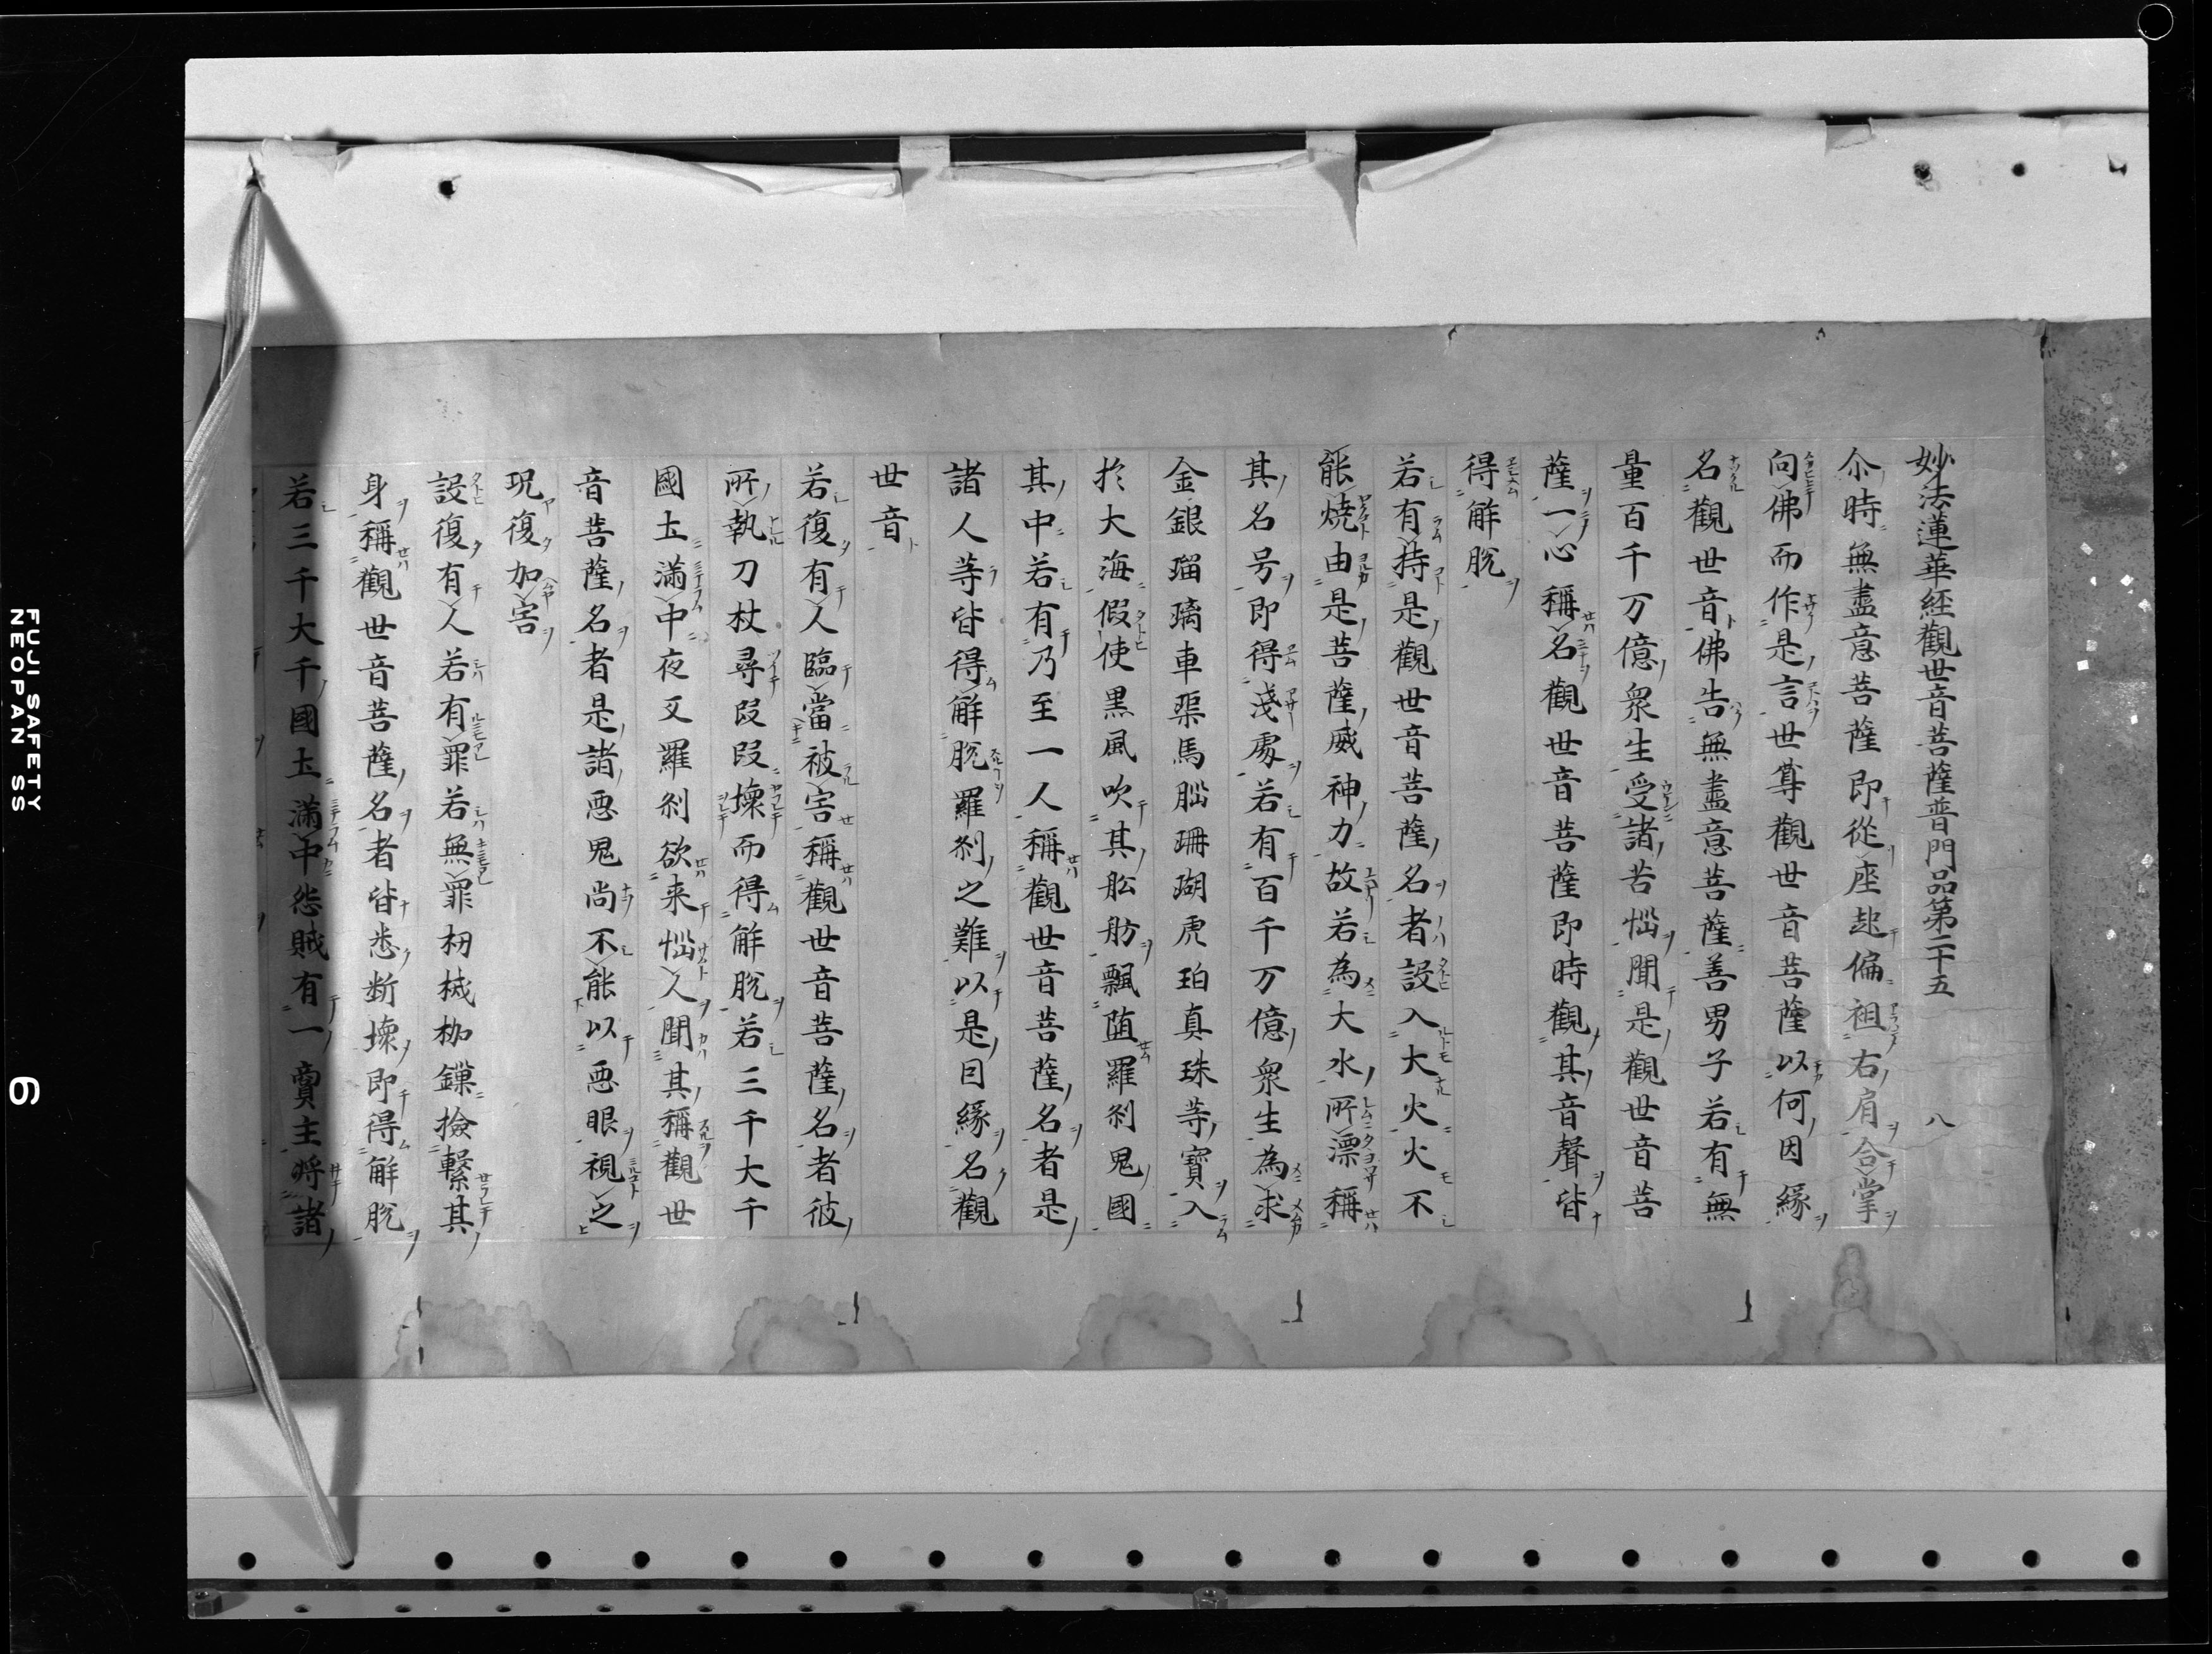 妙法蓮華経觀世音菩薩普門品第二十五 八
尒時無盡意菩薩即從座起偏袒右肩合掌
向佛而作是言世尊觀世音菩薩以何因緣
名觀世音佛告無盡意菩薩善男子若有無
量百千万億衆生受諸苦惱聞是觀世音菩
薩一心稱名觀世音菩薩即時觀其音聲皆
得解脱
若有持是觀世音菩薩名者設入大火火不
能燒由是菩薩威神力故若為大水所漂稱
其名号即得淺處若有百千万億衆生為求
金銀瑠璃車渠馬脳珊瑚虎珀真珠等寶入
於大海假使黒風吹其舩舫飄墮羅刹鬼國
其中若有乃至一人稱觀世音菩薩名者是
諸人等皆得解脱羅刹之難以是因緣名觀
世音
若復有人臨當被害稱觀世音菩薩名者彼
所執刀杖尋段段壞而得解脱若三千大千
國土滿中夜叉羅刹欲来惱人聞其稱觀世
音菩薩名者是諸惡鬼尚不能以惡眼視之
況復加害
設復有人若有罪若無罪杻械枷鏁撿繫其
身稱觀世音菩薩名者皆悉断壞即得解脱
若三千大千國土滿中怨賊有一商主将諸
FUJI SAFETY
NEOPAN SS
6